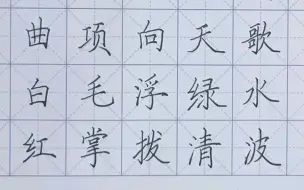 曲项向天歌
白毛浮绿水
红掌拨清波